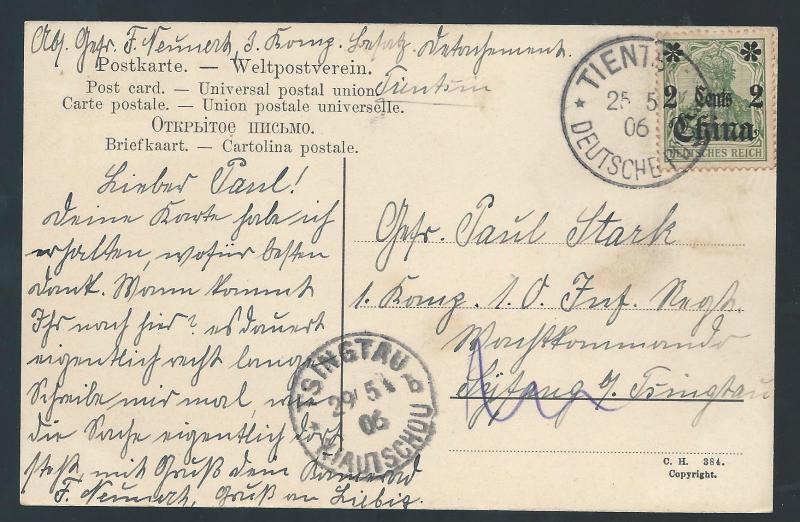 Abs. Gefr. F. Neunert, 3. Komp. Besatz. Detachement.
Tientsin
Postkarte. — Weltpostverein.
Post card. — Universal postal union
Carte postale. — Union postale universelle.
Открытое письмо.
Briefkaart. — Cartolina postale.
TIENTS
25 5
06
DEUTSCHE
2 Cents 2
China
DEUTSCHES REICH
Lieber Paul!
Deine Karte habe ich
erhalten, wofür besten
Dank. Wann kommt
Ihr nach hier? es dauert
eigentlich recht lange
Schreibe mir mal, wie
die Sache eigentlich dort
steht, mit Gruß dein Kamerad
F. Neunert, Gruß an Liebig.
Gefr. Paul Stark
1. Komp. 1. O. Inf. Regt.
Wachtkommando
b/ Tsingtau
TSINGTAU
29 5
06
KIAUTSCHOU
C. H. 384.
Copyright.